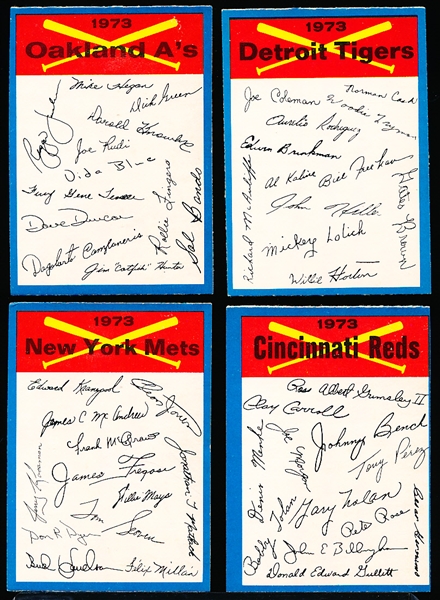 1973
Oakland A's
Mike Hegan
Dick Green
Darold Knowles
Joe Rudi
Vida Blue
Fury Gene Tenace
Dave Duncan
Rollie Fingers
Sal Bando
Dagoberto Campaneris
Jim "Catfish" Hunter
1973
Detroit Tigers
Norman Cash
Joe Coleman
Aurelio Rodriguez
Edwin Brinkman
Al Kaline
Bill Freehan
Gates Brown
John Hiller
Richard McAuliffe
Mickey Lolich
Willie Horton
1973
New York Mets
Edward Kranepool
Cleon Jones
James C. McAndrew
Frank McGraw
James Fregosi
Jonathan T. Matlack
Willie Mays
Jerry Koosman
Tom Seaver
Bud Harrelson
Felix Millan
1973
Cincinnati Reds
Ross Albert Grimsley II
Clay Carroll
Johnny Bench
Joe Morgan
Denis Menke
Tony Perez
Gary Nolan
Bobby Tolan
Pete Rose
John E Billingham
Donald Edward Gullett